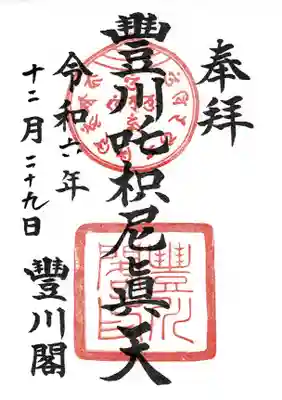 奉拝
豐川吒枳尼眞天
令和六年
十二月二十九日
豐川閣
豐川
閣印